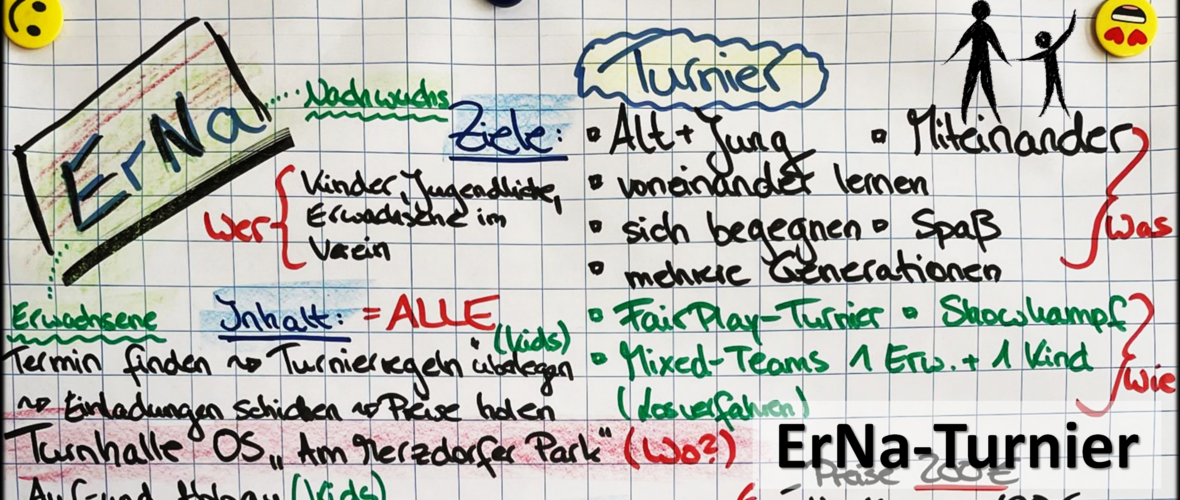 ErNa
Nachwuchs
Erwachsene
Turnier
Ziele:
▫ Alt + Jung ▫ Miteinander
▫ voneinander lernen
▫ sich begegnen ▫ Spaß
▫ mehrere Generationen
Was
Wer
Kinder, Jugendliche,
Erwachsene im
Verein
▫ FairPlay-Turnier ▫ Showkampf
▫ Mixed-Teams 1 Erw. + 1 Kind
(Losverfahren)
wie
Inhalt: = ALLE
(kids)
Termin finden ~> Turnierregeln überlegen
~> Einladungen schicken ~> Preise holen
Turnhalle OS „Am Merzdorfer Park“ (Wo?)
ErNa-Turnier
Preise 200€
Auf- und Abbau (kids)